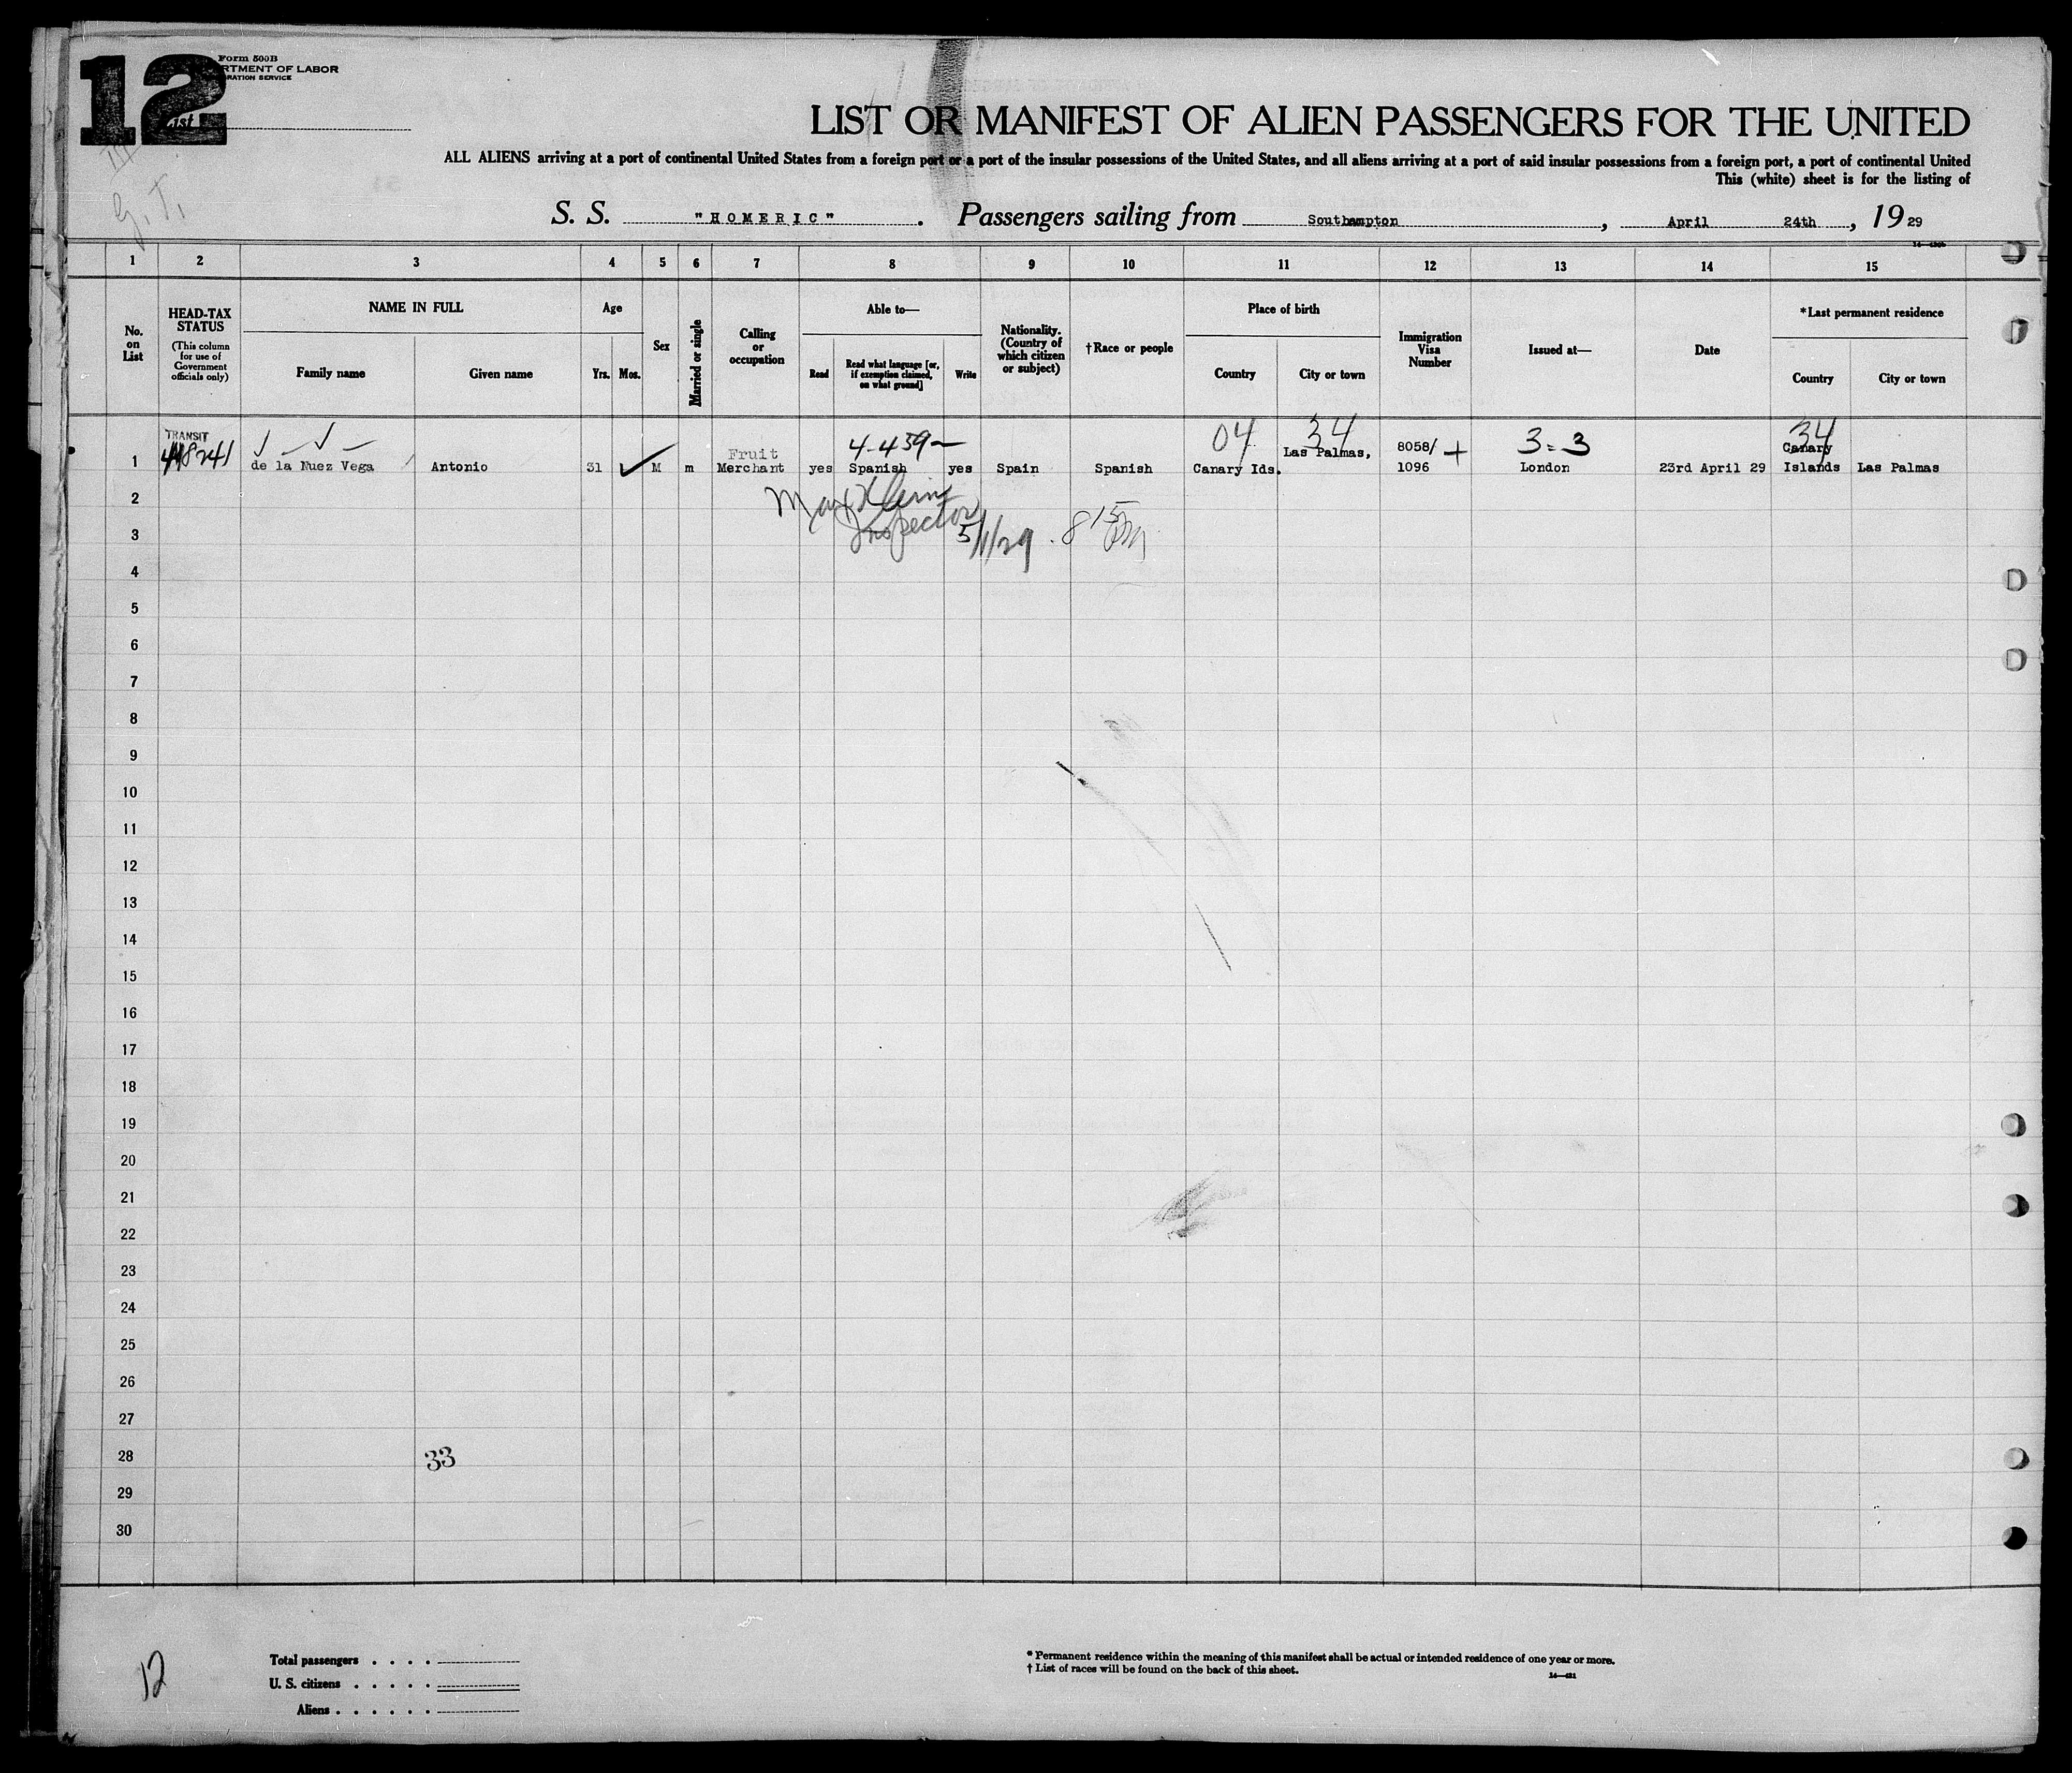 12
Form 500B
RTMENT OF LABOR
RATION SERVICE
List
G. T.
LIST OR MANIFEST OF ALIEN PASSENGERS FOR THE UNITED
ALL ALIENS arriving at a port of continental United States from a foreign port or a port of the insular possessions of the United States, and all aliens arriving at a port of said insular possessions from a foreign port, a port of continental United
This (white) sheet is for the listing of
S. S. "HOMERIC". Passengers sailing from Southampton, April 24th, 1929
1 2 3 4 5 6 7 8 9 10 11 12 13 14 15
No. on List
HEAD-TAX STATUS
(This column for use of Government officials only)
NAME IN FULL
Family name
Given name
Age
Yrs. Mos.
Sex
Married or single
Calling or occupation
Able to—
Read
Read what language [or, if exemption claimed, on what ground]
Write
Nationality. (Country of which citizen or subject)
†Race or people
Place of birth
Country
City or town
Immigration Visa Number
Issued at—
Date
*Last permanent residence
Country
City or town
TRANSIT
4-459-
04 34 3-3 34
1 de la Nuez Vega Antonio 31 M m Fruit Merchant yes Spanish yes Spain Spanish Canary Ids. Las Palmas, 8058/1096 + London 23rd April 29 Canary Islands Las Palmas
Max Klein
Inspector
5/1/29 . 8 15 PM
2
3
4
5
6
7
8
9
10
11
12
13
14
15
16
17
18
19
20
21
22
23
24
25
26
27
28
33
29
30
12
Total passengers
U. S. citizens
Aliens
* Permanent residence within the meaning of this manifest shall be actual or intended residence of one year or more.
† List of races will be found on the back of this sheet.